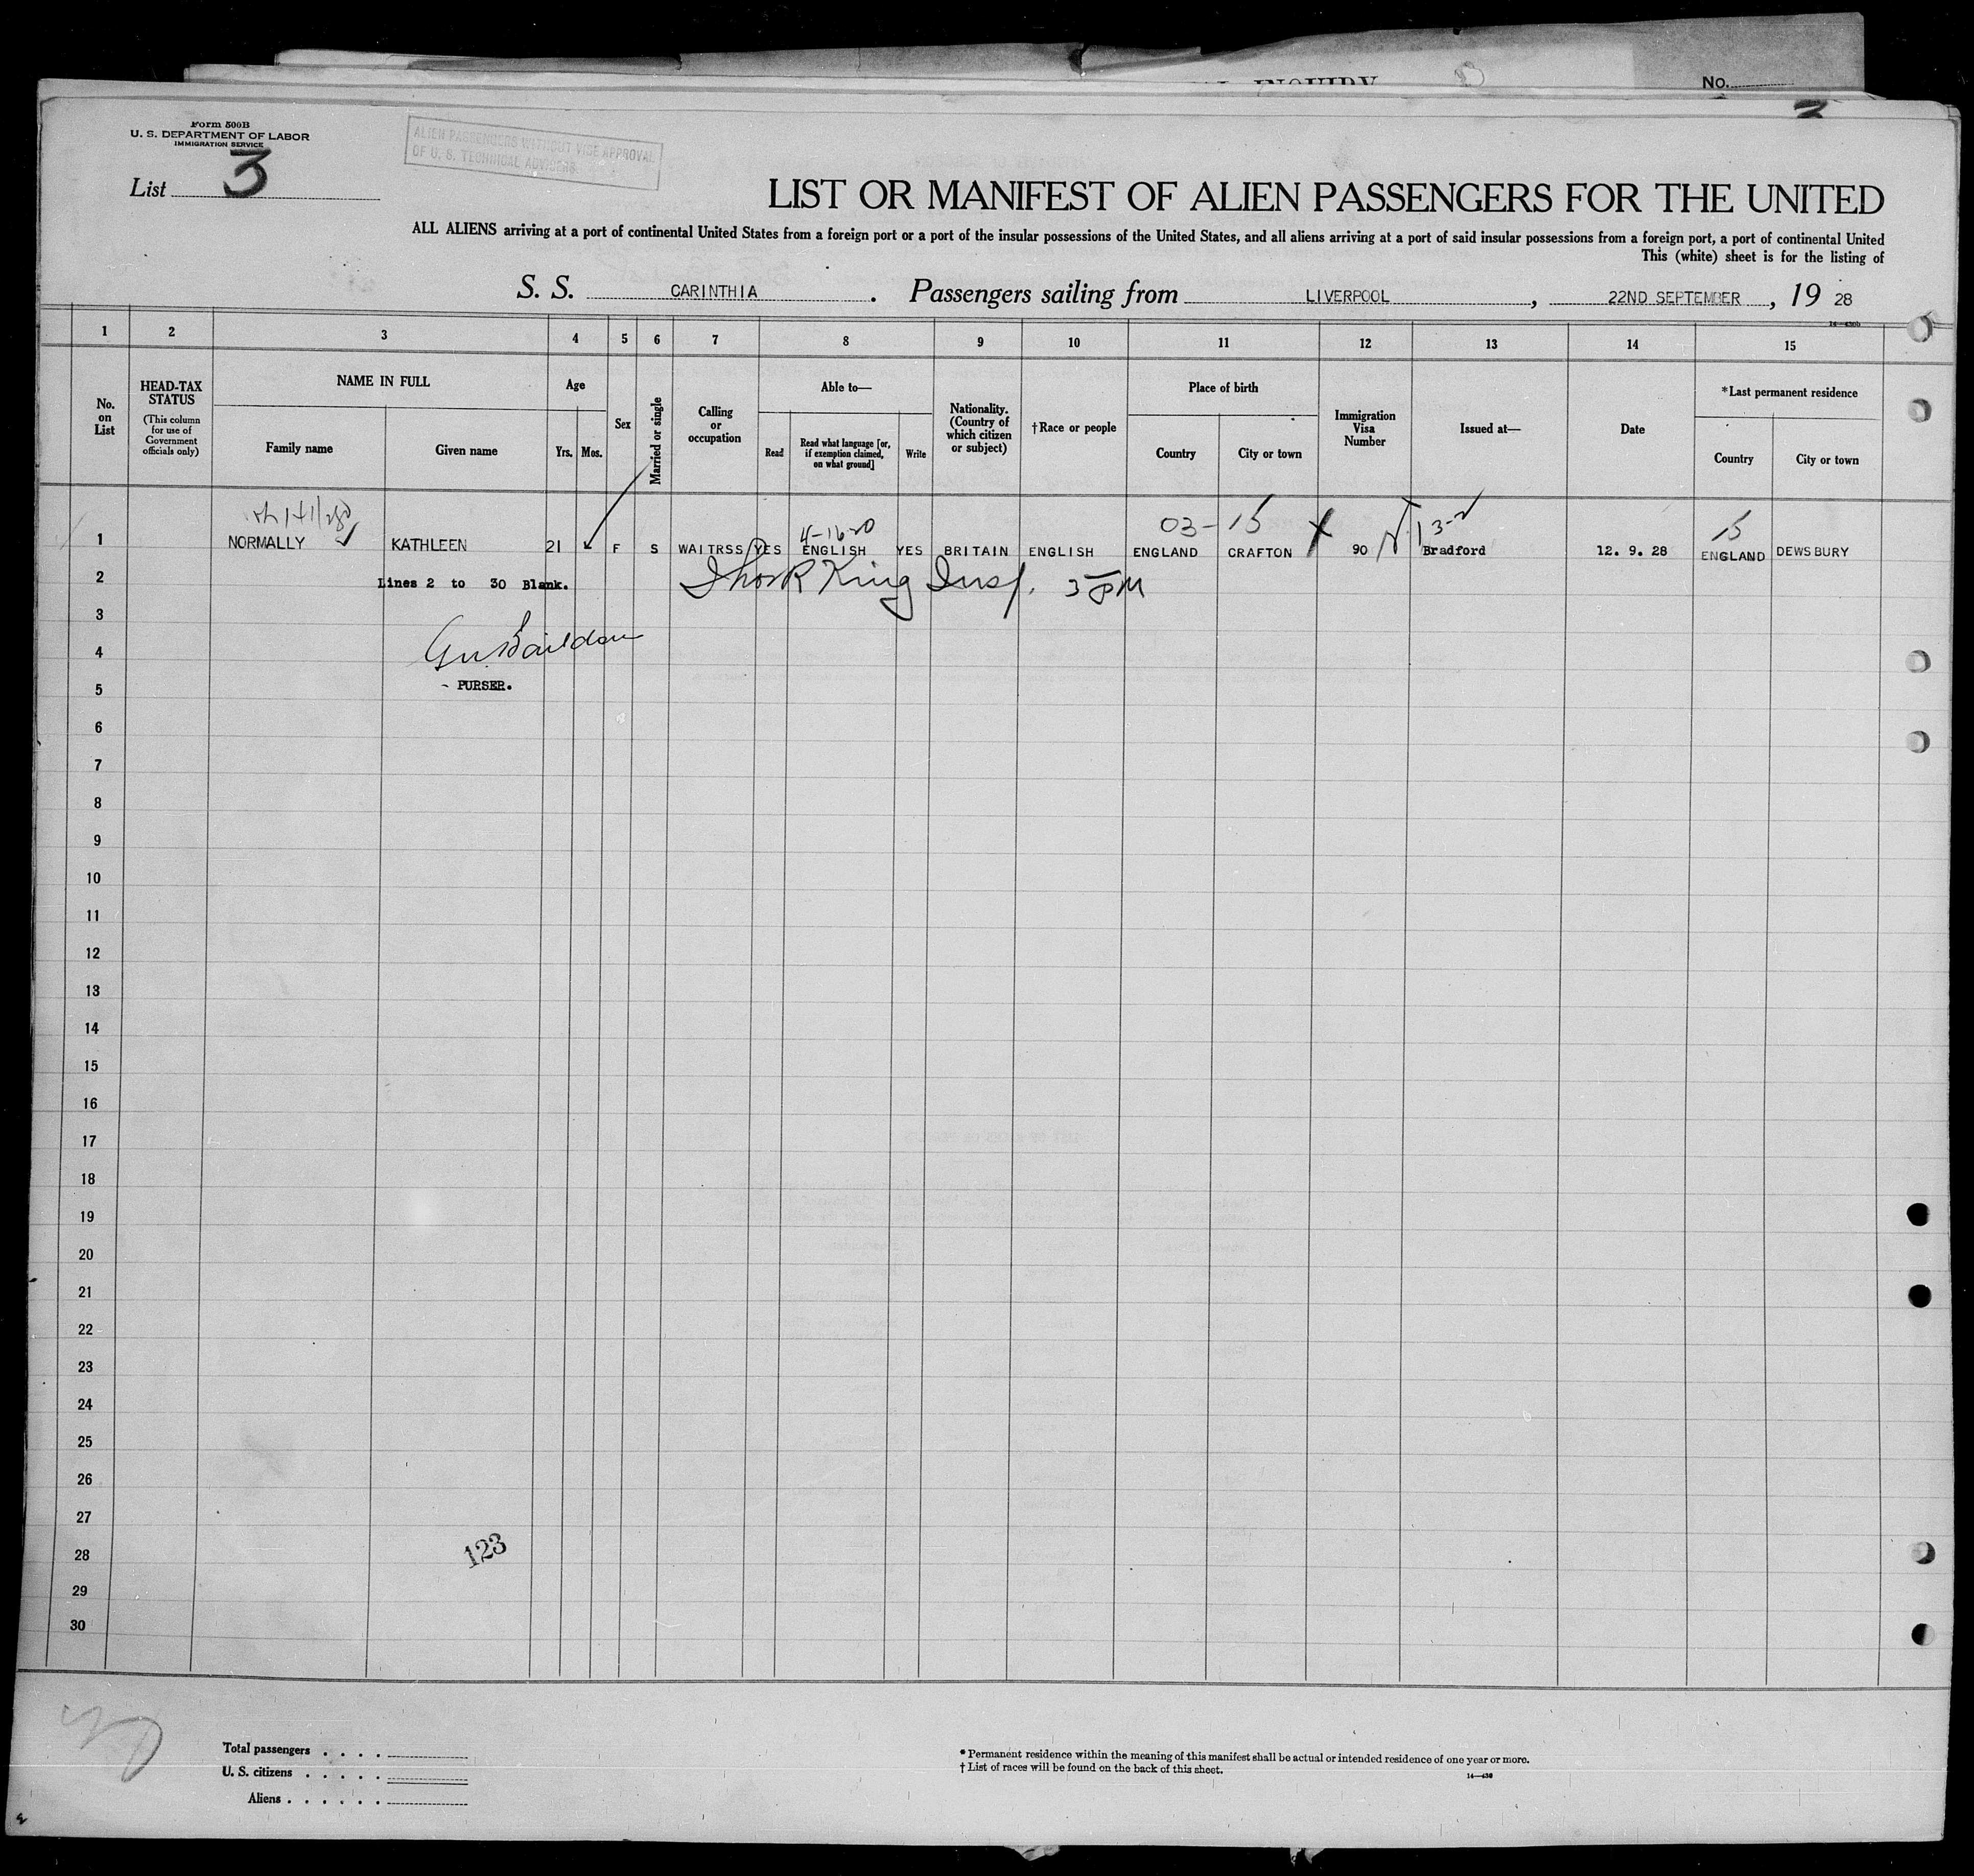 No.
3
Form 500B
U. S. DEPARTMENT OF LABOR
IMMIGRATION SERVICE
ALIEN PASSENGERS WITHOUT VISE APPROVAL
OF U. S. TECHNICAL ADVISERS
List 3
LIST OR MANIFEST OF ALIEN PASSENGERS FOR THE UNITED
ALL ALIENS arriving at a port of continental United States from a foreign port or a port of the insular possessions of the United States, and all aliens arriving at a port of said insular possessions from a foreign port, a port of continental United
This (white) sheet is for the listing of
S. S. CARINTHIA. Passengers sailing from LIVERPOOL, 22ND SEPTEMBER, 19 28
1 2 3 4 5 6 7 8 9 10 11 12 13 14 15
No. on List
HEAD-TAX STATUS
(This column for use of Government officials only)
NAME IN FULL
Family name
Given name
Age
Yrs. Mos.
Sex
Married or single
Calling or occupation
Able to—
Read
Read what language [or, if exemption claimed, on what ground]
Write
Nationality. (Country of which citizen or subject)
†Race or people
Place of birth
Country
City or town
Immigration Visa Number
Issued at—
Date
*Last permanent residence
Country
City or town
4-1620 03- 15 13-2 15
1 NORMALLY KATHLEEN 21 F S WAITRSS YES ENGLISH YES BRITAIN ENGLISH ENGLAND CRAFTON 90 Bradford 12. 9. 28 ENGLAND DEWSBURY
2 Lines 2 to 30 Blank. King Insp.
3
4
5 PURSER.
6
7
8
9
10
11
12
13
14
15
16
17
18
19
20
21
22
23
24
25
26
27
28 123
29
30
Total passengers . . . .
U. S. citizens . . . . .
Aliens . . . . . .
* Permanent residence within the meaning of this manifest shall be actual or intended residence of one year or more.
† List of races will be found on the back of this sheet.
14—430